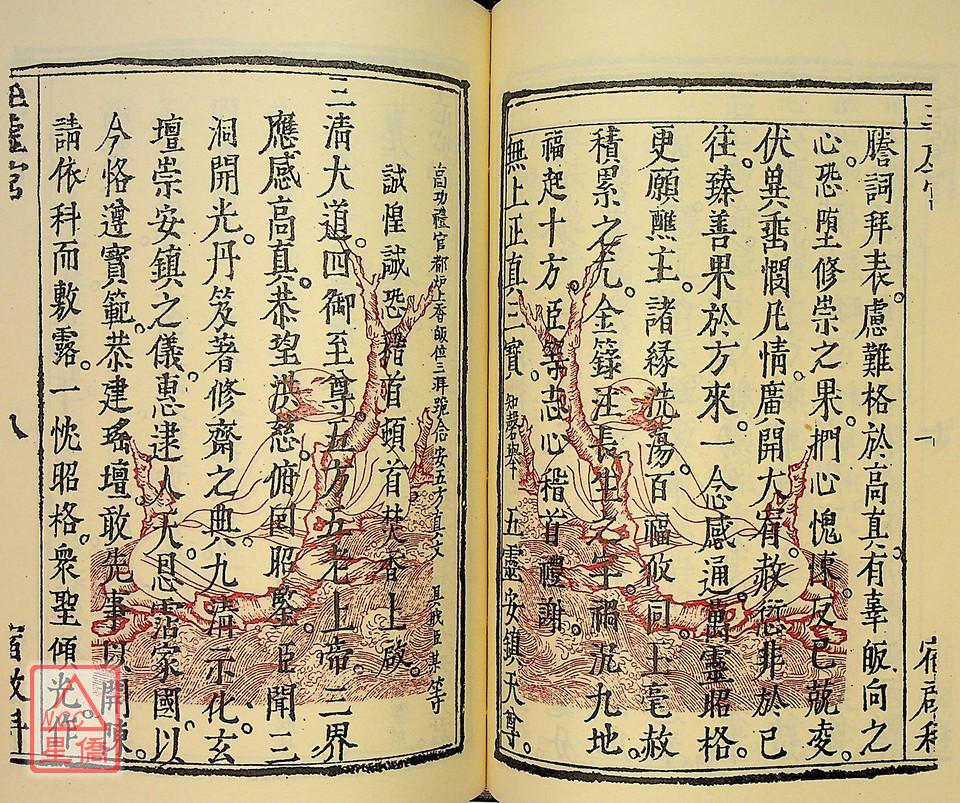 謄詞拜表。慮難格於高真。有辜皈向之
心。恐墮修崇之果。捫心愧悚。反己兢夌。
伏兾垂憫凡情。廣開大宥。赦愆非於已
往。臻善果於方來。一念感通。萬靈昭格
更願醮主。諸緣洗蕩。百福攸同。土毫赦
積累之尤。金籙注長生之年。禍沉九地。
福起十方。臣等志心稽首禮謝。
無上正真三寶 知磬舉 五靈安鎮天尊。
高功禮官都炉上香皈位三拜跪念安五方真文 具戝臣 等
誠惶誠恐。稽首頓首。焚香上啟。
三清大道。四御至尊。五方五老上帝。三界
應感高真。恭望洪慈。俯回昭鑒。臣聞三
洞開光。丹笈著修齋之典。九清示化。玄
壇崇安鎮之儀。惠逮人天。恩霑家國。以
今恪遵寶範。恭建瑤壇。敢先事以開陳。
請依科而敷露。一忱昭格。衆聖傾光。
宿啟科
一
八
星僑